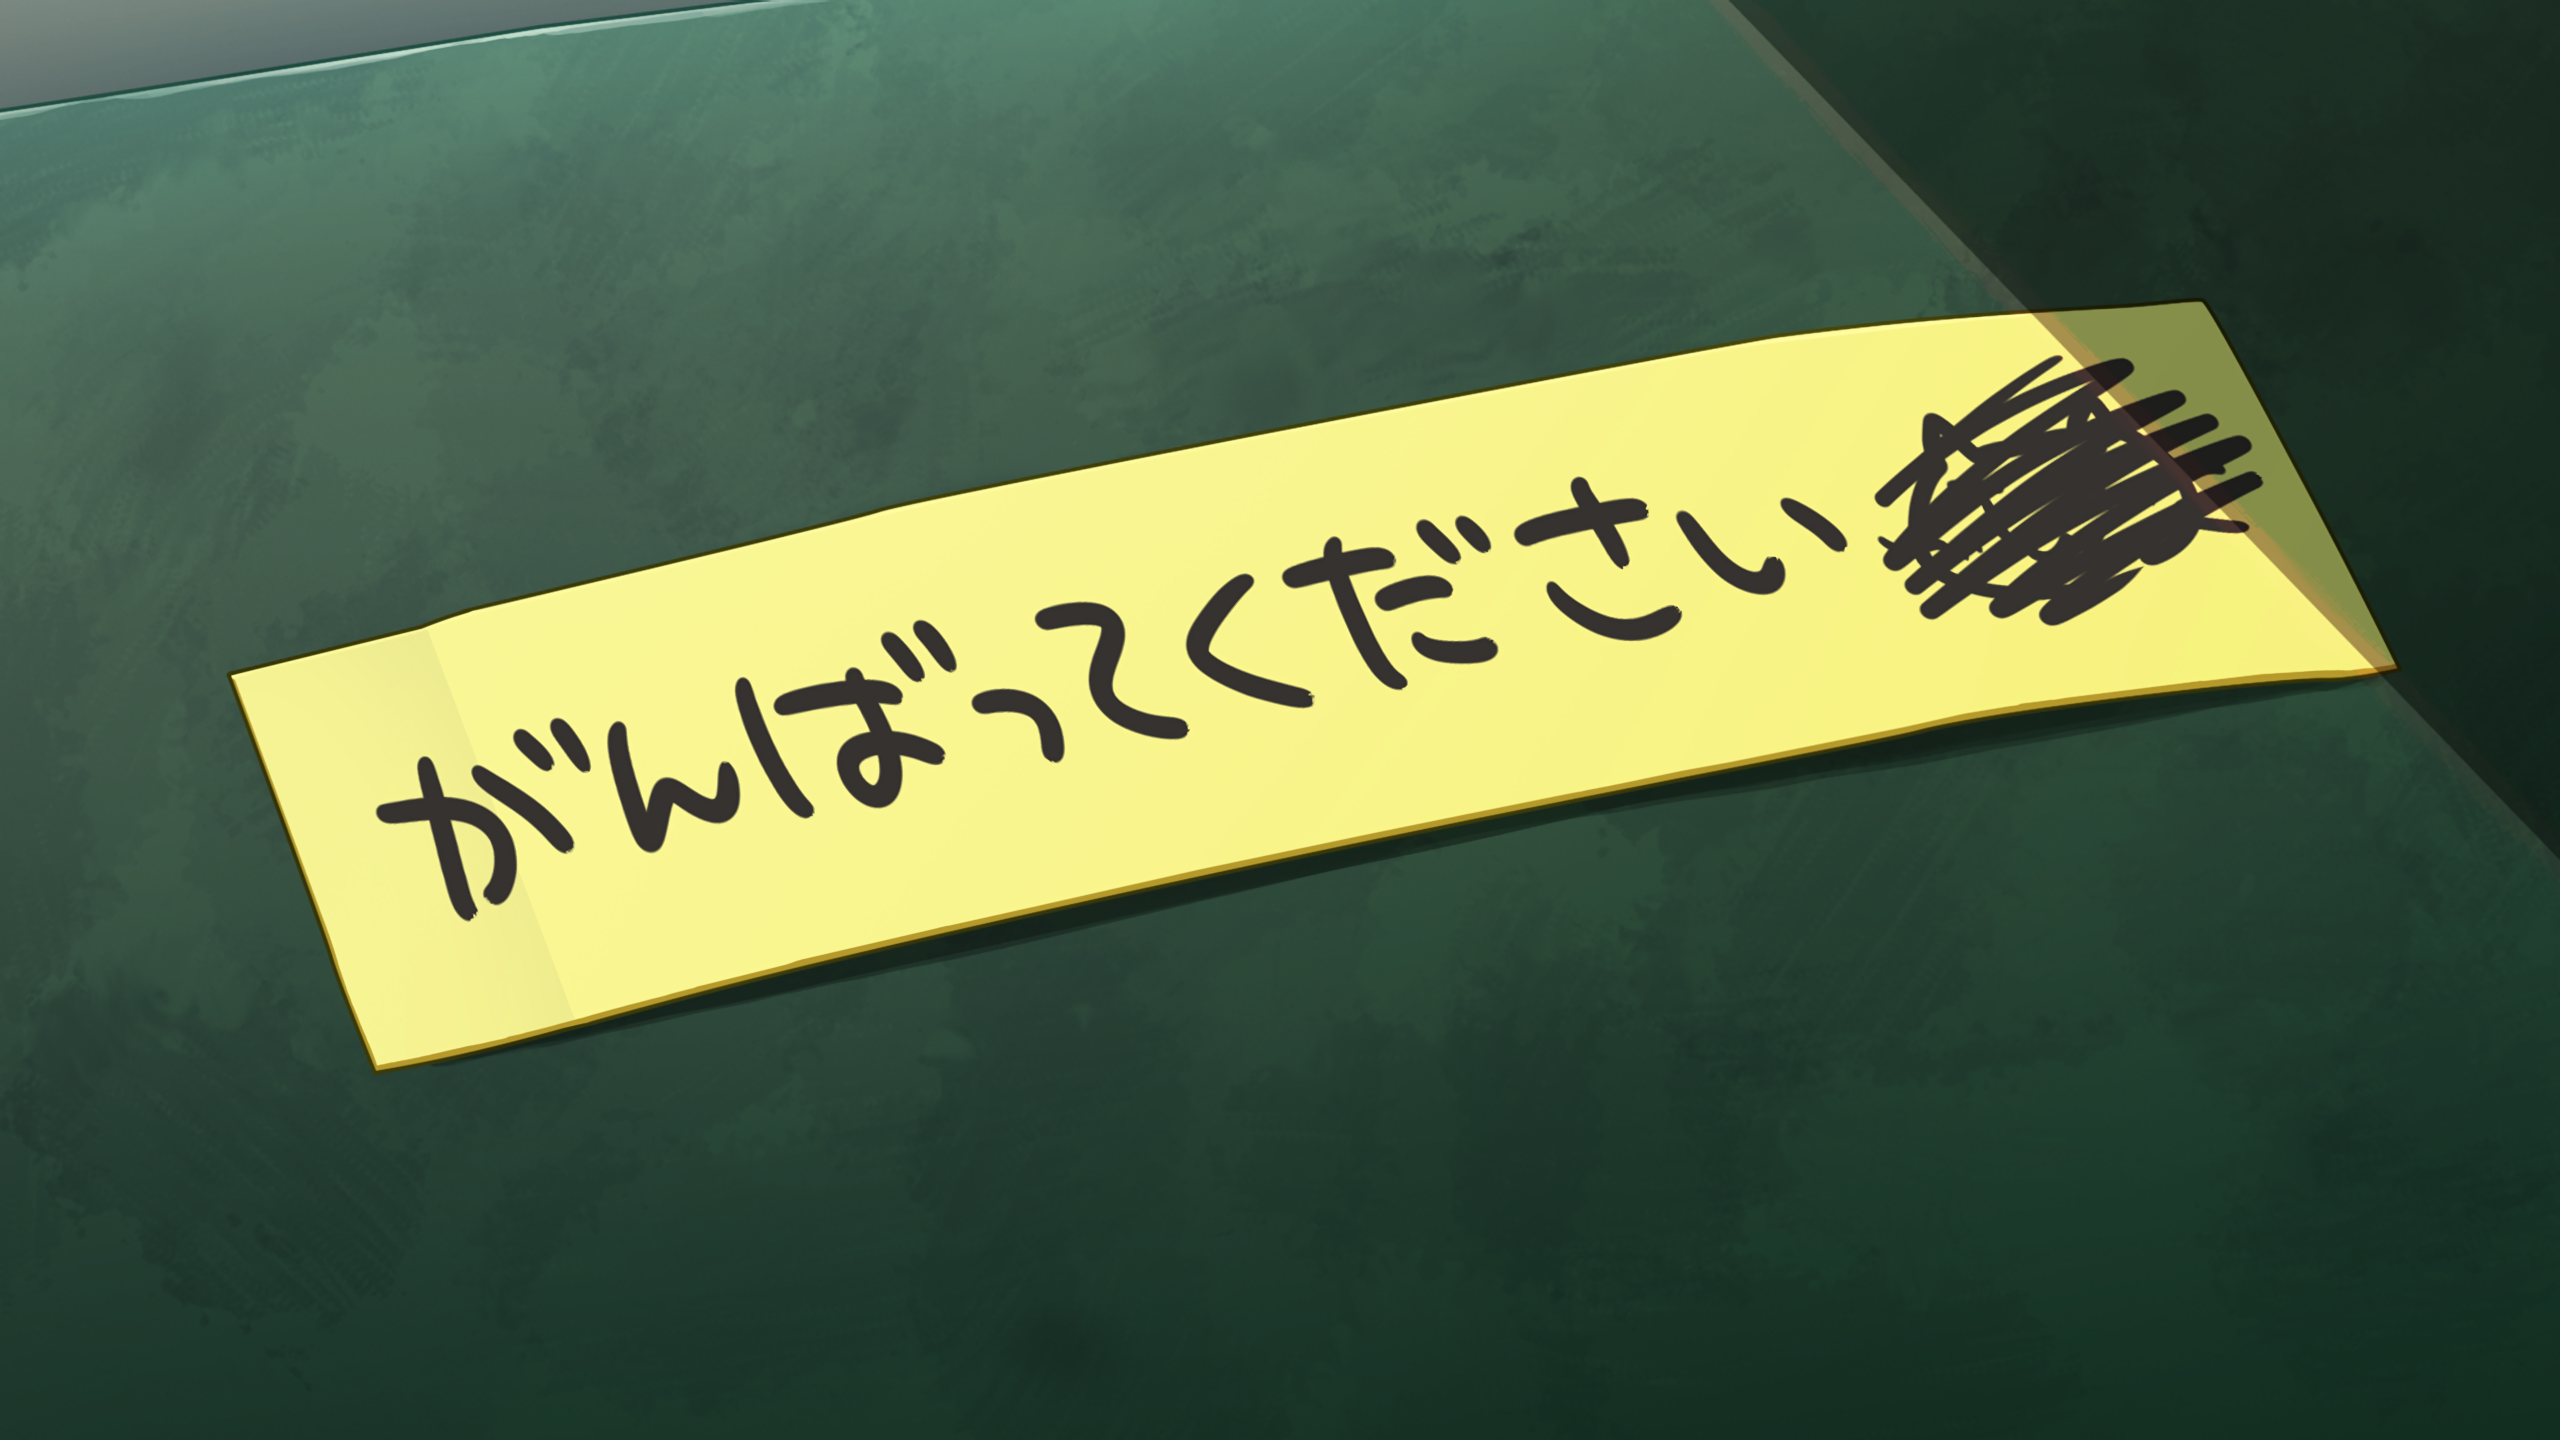 がんばってください